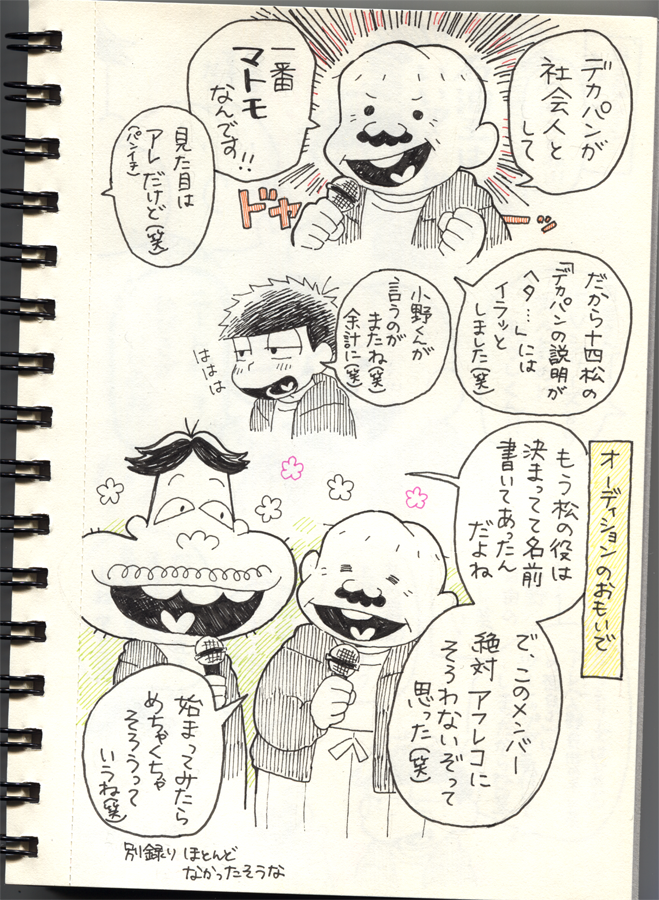 デカパンが
社会人と
して
一番
マトモ
なんです!!
見た目は
アレだけど(笑)
(パンイチ)
ドヤ
ーッ
だから十四松の
「デカパンの説明が
ヘタ…」には
イラッと
しました(笑)
小野くんが
言うのが
またね(笑)
余計に(笑)
ははは
オーディションのおもいで
もう松の役は
決まってて名前
書いてあったん
だよね
で、このメンバー
絶対アフレコに
そろわないぞって
思った(笑)
始まってみたら
めちゃくちゃ
そろうって
いうね(笑)
別録りほとんど
なかったそうな